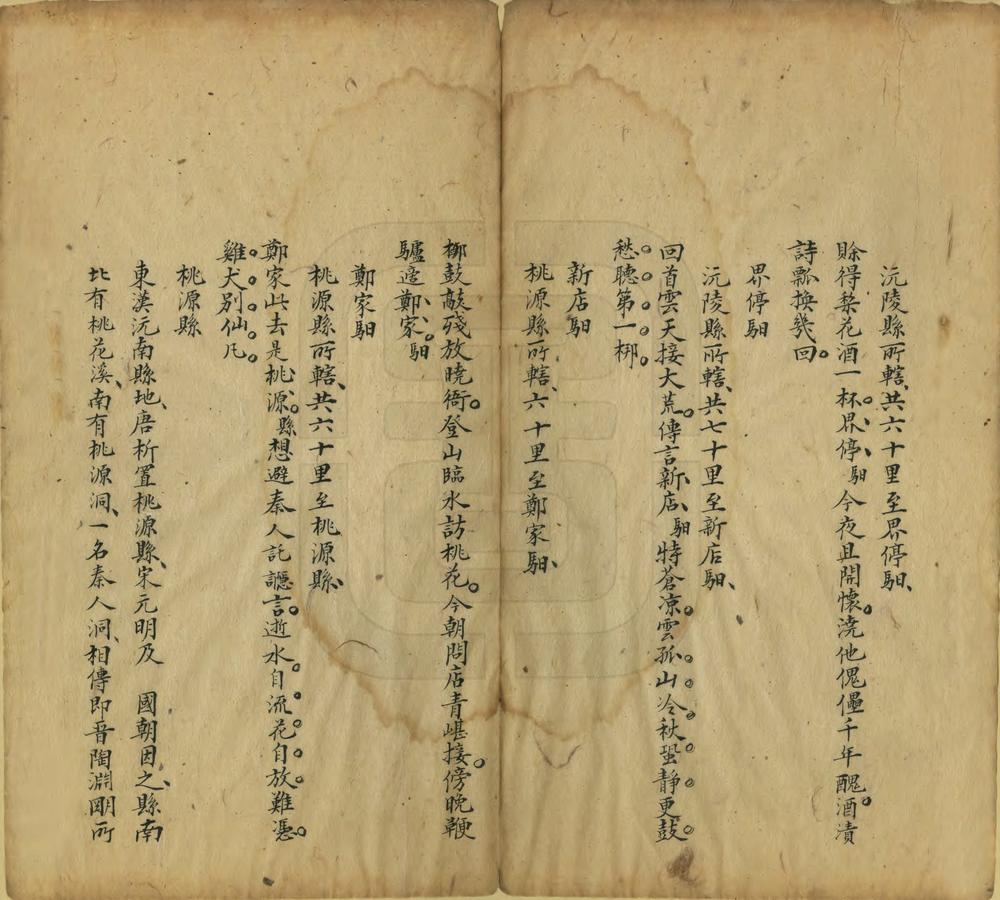 沅陵縣所轄共六十里至界停馹
賒得梨花酒一杯界停馹今夜且開懷澆他傀儡千年醜酒漬
詩瓢換幾回
界停馹
沅陵縣所轄共七十里至新店馹
回首雲天接大荒傳言新店馹特蒼凉雲孤山冷秋蛩靜更鼓
愁聽第一梆
新店馹
桃源縣所轄六十里至鄭家馹
梆鼓敲殘放曉衙登山臨水訪桃花今朝問店青嵁接傍晚鞭
驢造鄭家馹
鄭家馹
桃源縣所轄共六十里至桃源縣
鄭家此去是桃源縣想避秦人託讔言逝水自流花自放難憑
雞犬別仙凡
桃源縣
東漢沅南縣地唐析置桃源縣宋元明及 國朝因之縣南
北有桃花溪南有桃源洞一名秦人洞相傳即晉陶淵明所